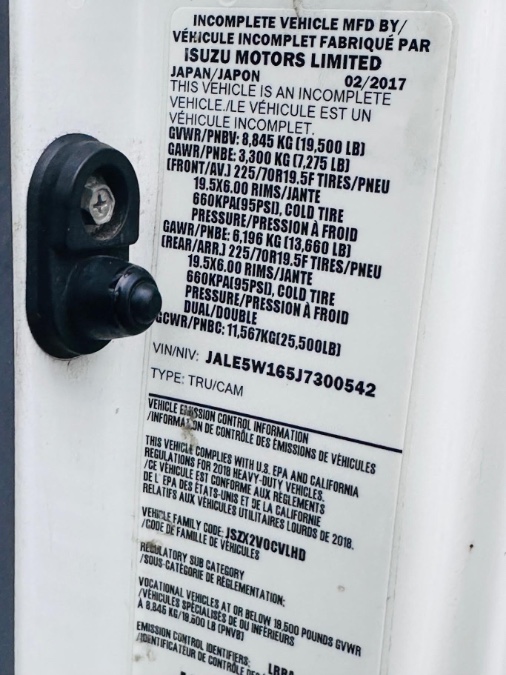 INCOMPLETE VEHICLE MFD BY/
VÉHICULE INCOMPLET FABRIQUÉ PAR
ISUZU MOTORS LIMITED
JAPAN/JAPON 02/2017
THIS VEHICLE IS AN INCOMPLETE
VEHICLE./LE VÉHICULE EST UN
VÉHICULE INCOMPLET.
GVWR/PNBV: 8,845 KG (19,500 LB)
GAWR/PNBE: 3,300 KG (7,275 LB)
(FRONT/AV.) 225/70R19.5F TIRES/PNEU
19.5X6.00 RIMS/JANTE
660KPA(95PSI), COLD TIRE
PRESSURE/PRESSION À FROID
GAWR/PNBE: 6,196 KG (13,660 LB)
(REAR/ARR.) 225/70R19.5F TIRES/PNEU
19.5X6.00 RIMS/JANTE
660KPA(95PSI), COLD TIRE
PRESSURE/PRESSION À FROID
DUAL/DOUBLE
GCWR/PNBC: 11,567KG(25,500LB)
VIN/NIV: JALE5W165J7300542
TYPE: TRU/CAM
VEHICLE EMISSION CONTROL INFORMATION
/INFORMATION DE CONTRÔLE DES ÉMISSIONS DE VÉHICULES
THIS VEHICLE COMPLIES WITH U.S. EPA AND CALIFORNIA
REGULATIONS FOR 2018 HEAVY-DUTY VEHICLES.
/CE VÉHICULE EST CONFORME AUX RÈGLEMENTS
DE L EPA DES ÉTATS-UNIS ET DE LA CALIFORNIE
RELATIFS AUX VÉHICULES UTILITAIRES LOURDS DE 2018.
VEHICLE FAMILY CODE: JSZX2VOCVLHD
/CODE DE FAMILLE DE VÉHICULES
REGULATORY SUB CATEGORY
/SOUS-CATÉGORIE DE RÉGLEMENTATION:
VOCATIONAL VEHICLES AT OR BELOW 19,500 POUNDS GVWR
/VÉHICULES SPÉCIALISÉS DE OU INFÉRIEURS
À 8,845 KG/19,500 LB (PNVB)
EMISSION CONTROL IDENTIFIERS: LRRA
/IDENTIFICATEUR DE CONTRÔLE DES